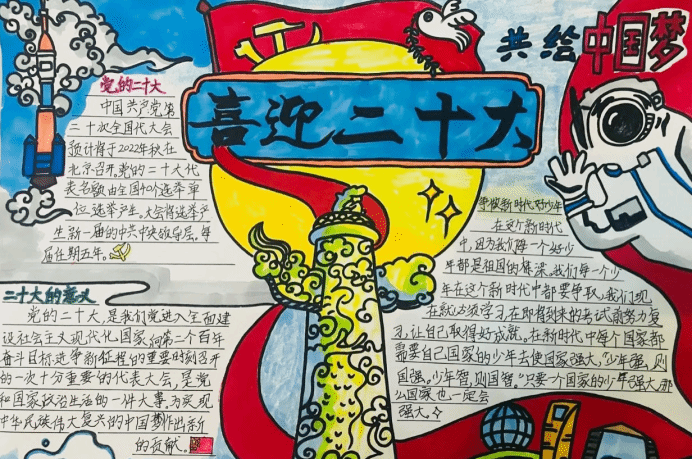 共绘中国梦
喜迎二十大
党的二十大
中国共产党第
二十次全国代大会
预计将于2022年秋在
北京召开,党的二十大代
表名额由全国40个选举单
位选举产生,大会将选举产
生新一届的中共中央领导层,每
届任期五年。
二十大的意义
党的二十大,是我们党进入全面建
设社会主义现代化国家,向第二个百年
奋斗目标进争新征程的重要时刻召开
的一次十分重要的代表大会,是党
和国家政治生活的一件大事,为实现
中华民族伟大复兴的中国梦作出新
的贡献。
争做新时代好少年
在这个新时代
中,因为我们每一个好少
年都是祖国的栋梁,我们每一个少
年在这个新时代中都要争取,我们现
在就必须学习在即将到来的考试前努力复
习,让自己取得好成就。在新时代中每个国家都
需要自己国家的少年去使国家强大,“少年强,则
国强。少年智,则国智。”只要一个国家的少年强大,那
么国家也一定会
强大。